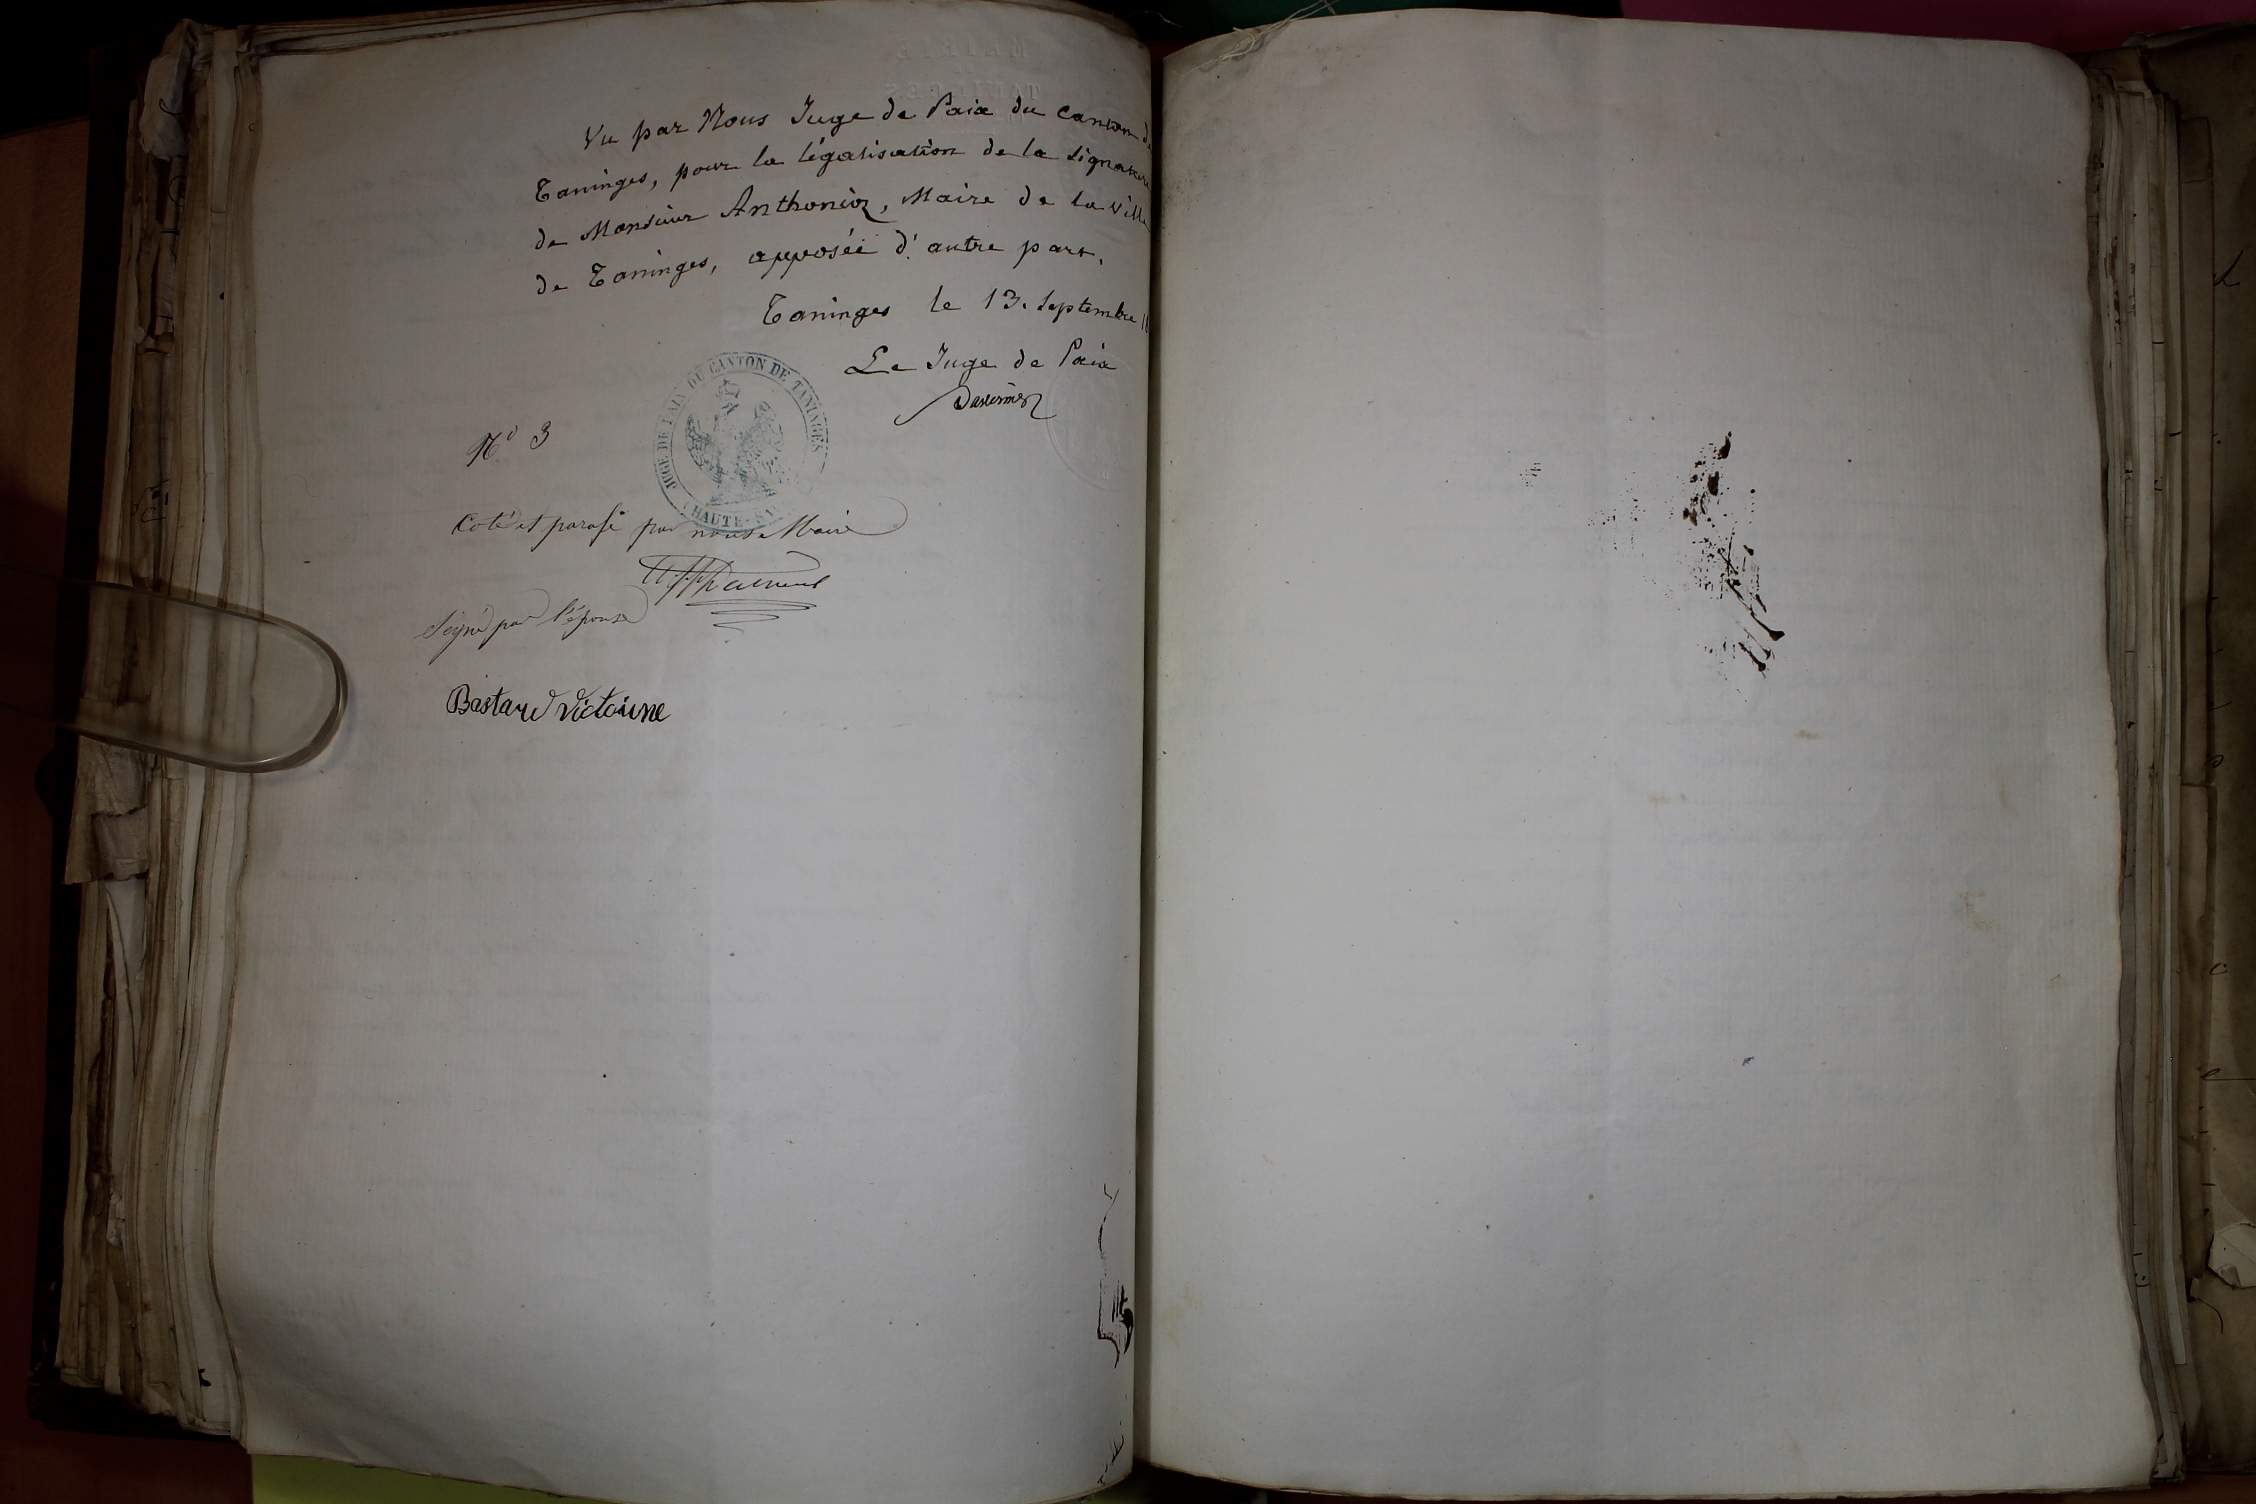 Vu par Nous Juge de Paix du Canton de
Taninges, pour la légalisation de la signature
de Monsieur Anthonioz, Maire de la Ville
de Taninges, apposée d'autre part.
Taninges le 13. Septembre
Le Juge de Paix
JUGE DE PAIX DU CANTON DE TANINGES
HAUTE-SA
N° 3
Coté et parafé par nous Maire
Signé par l'épouse
Bastard Victorine